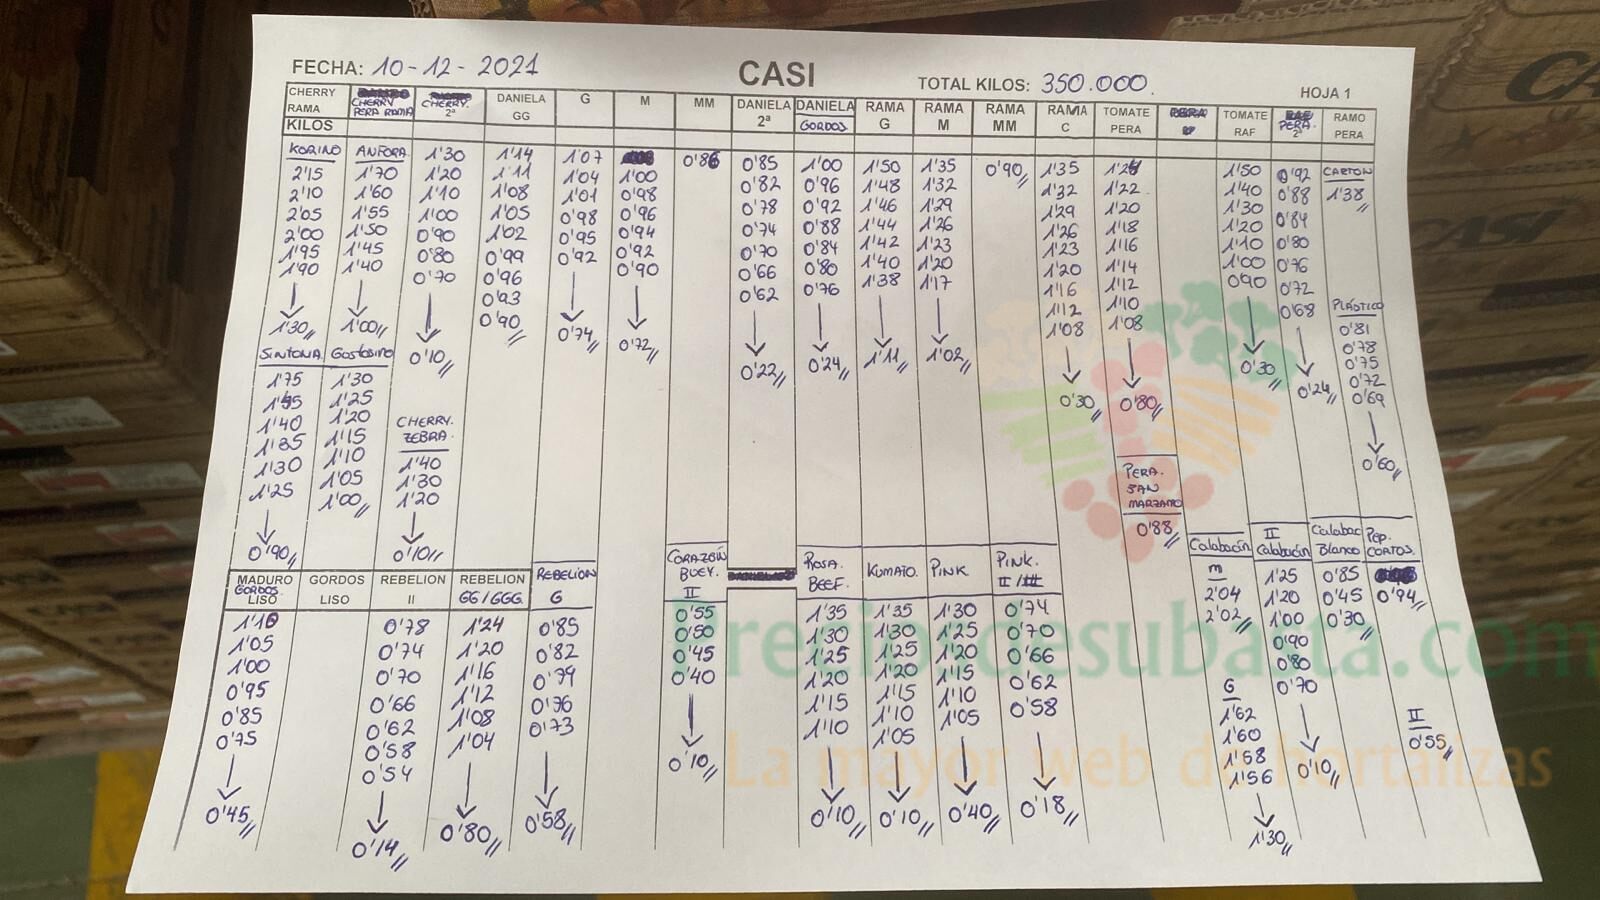 FECHA: 10-12-2021
CASI
TOTAL KILOS: 350.000.
HOJA 1
CHERRY RAMA KILOS
CHERRY PERA RAMA
CHERRY. 2ª
DANIELA GG
G
M
MM
DANIELA 2ª
DANIELA GORDOS
RAMA G
RAMA M
RAMA MM
RAMA C
TOMATE PERA
TOMATE RAF
PERA. 2ª
RAMO PERA
KORINO
2'15
2'10
2'05
2'00
1'95
1'90
1'30
SINTONIA
1'75
1'40
1'35
1'30
1'25
0'90
ANFORA
1'70
1'60
1'55
1'50
1'45
1'40
1'00
Gostosino
1'30
1'25
1'20
1'15
1'10
1'05
1'00
1'30
1'20
1'10
1'00
0'90
0'80
0'70
0'10
CHERRY. ZEBRA.
1'40
1'30
1'20
0'10
1'14
1'11
1'08
1'05
1'02
0'99
0'96
0'93
0'90
1'07
1'04
1'01
0'98
0'95
0'92
0'74
1'00
0'98
0'96
0'94
0'92
0'90
0'72
0'86
0'85
0'82
0'78
0'74
0'70
0'66
0'62
0'22
1'00
0'96
0'92
0'88
0'84
0'80
0'76
0'24
1'50
1'48
1'46
1'44
1'42
1'40
1'38
1'11
1'35
1'32
1'29
1'26
1'23
1'20
1'17
1'02
0'90
1'35
1'32
1'29
1'26
1'23
1'20
1'16
1'12
1'08
0'30
1'24
1'22
1'20
1'18
1'16
1'14
1'12
1'10
1'08
0'80
PERA.
SAN
MARZANO
0'88
1'50
1'40
1'30
1'20
1'10
1'00
0'90
0'30
0'92
0'88
0'84
0'80
0'76
0'72
0'68
0'24
CARTON
1'38
PLÁSTICO
0'81
0'78
0'75
0'72
0'69
0'60
MADURO GORDOS LISO
1'10
1'05
1'00
0'95
0'85
0'75
0'45
GORDOS LISO
REBELION II
0'78
0'74
0'70
0'66
0'62
0'58
0'54
0'14
REBELION GG/GGG.
1'24
1'20
1'16
1'12
1'08
1'04
0'80
REBELION G
0'85
0'82
0'79
0'76
0'73
0'58
CORAZÓN
BUEY.
II
0'55
0'50
0'45
0'40
0'10
ROSA.
BEEF.
1'35
1'30
1'25
1'20
1'15
1'10
0'10
KUMATO.
1'35
1'30
1'25
1'20
1'15
1'10
1'05
0'10
PINK
1'30
1'25
1'20
1'15
1'10
1'05
0'40
PINK.
II/III
0'74
0'70
0'66
0'62
0'58
0'18
Calabacín
m
2'04
2'02
G
1'62
1'60
1'58
1'56
1'30
II
Calabacín
1'25
1'20
1'00
0'90
0'80
0'70
0'10
Calabac
Blanco
0'85
0'45
0'30
Pep.
CORTOS.
0'94
II
0'55
Preciosdesubasta.com
La mayor web de hortalizas
CASI